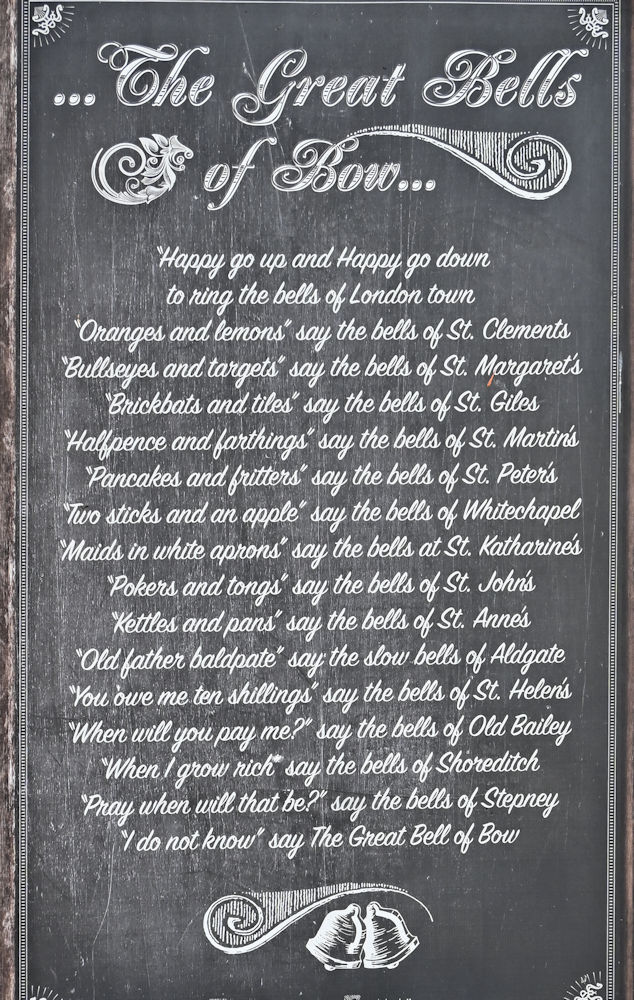 ...The Great Bells
of Bow...
"Happy go up and Happy go down
to ring the bells of London town
"Oranges and lemons" say the bells of St. Clements
"Bullseyes and targets" say the bells of St. Margaret's
"Brickbats and tiles" say the bells of St. Giles
"Halfpence and farthings" say the bells of St. Martin's
"Pancakes and fritters" say the bells of St. Peter's
"Two sticks and an apple" say the bells of Whitechapel
"Maids in white aprons" say the bells at St. Katharine's
"Pokers and tongs" say the bells of St. John's
"Kettles and pans" say the bells of St. Anne's
"Old father baldpate" say the slow bells of Aldgate
"You owe me ten shillings" say the bells of St. Helen's
"When will you pay me?" say the bells of Old Bailey
"When I grow rich" say the bells of Shoreditch
"Pray when will that be?" say the bells of Stepney
"I do not know" say The Great Bell of Bow